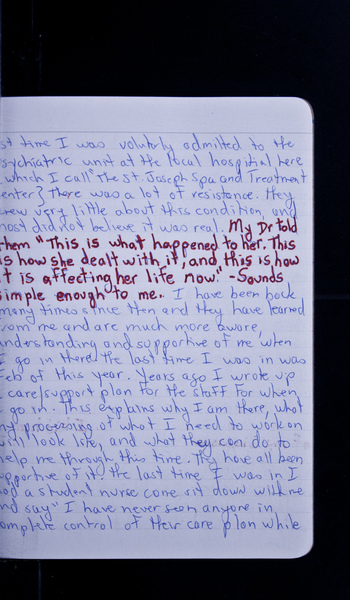 st time I was volutarly admitted to the
sychiatric unit at the local hospitial here
which I call "The St. Joseph Spa and Treatment
enter} There was a lot of resistance. They
new very little about this condition, and
most did not believe it was real. My Dr told
them "This is what happened to her. This
is how she dealt with it, and this is how
it is affecting her life now." - Sounds
simple enough to me. I have been back
many times since then and they have learned
rom me and are much more aware,
understanding and supportive of me when
I go in there. The last time I was in was
Feb of this year. Years ago I wrote up
care/support plan for the staff for when
go in. This explains why I am there, what
my processing of what I need to work on
will look like, and what they can do to
help me through this time. They have all been
supportive of it. The last time I was in I
a student nurse come sit down with me
nd say "I have never seen anyone in
omplete control of their care plan while